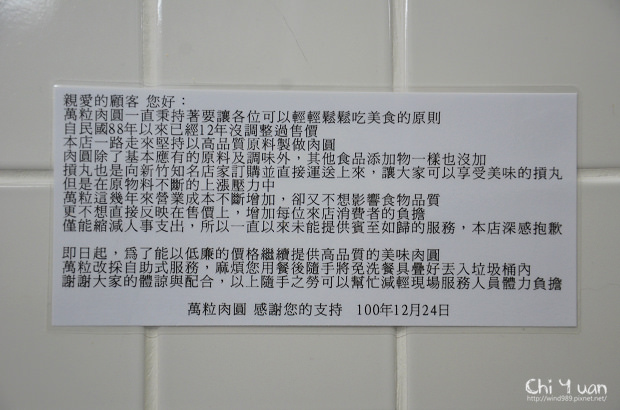 親愛的顧客 您好：
萬粒肉圓一直秉持著要讓各位可以輕輕鬆鬆吃美食的原則
自民國88年以來已經12年沒調整過售價
本店一路走來堅持以高品質原料製做肉圓
肉圓除了基本應有的原料及調味外，其他食品添加物一樣也沒加
摃丸也是向新竹知名店家訂購並直接運送上來，讓大家可以享受美味的摃丸
但是在原物料不斷的上漲壓力中
萬粒這幾年來營業成本不斷增加，卻又不想影響食物品質
更不想直接反映在售價上，增加每位來店消費者的負擔
僅能縮減人事支出，所以一直以來未能提供賓至如歸的服務，本店深感抱歉
即日起，為了能以低廉的價格繼續提供高品質的美味肉圓
萬粒改採自助式服務，麻煩您用餐後隨手將免洗餐具疊好丟入垃圾桶內
謝謝大家的體諒與配合，以上隨手之勞可以幫忙減輕現場服務人員體力負擔
萬粒肉圓 感謝您的支持 100年12月24日
Chi Yuan
http://wind989.pixnet.net/